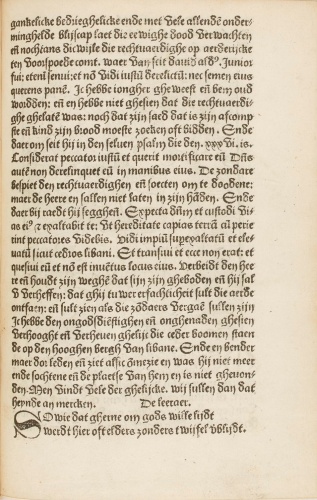 gankelicke bedrieghelicke ende met vele allenden onder-
minghelde blijscap laet die eewighe dood verwachten
en nochtans dicwijle die rechtuaerdighe op aerderijcke
ten voorspoede comt. waer van seit dauid also. Junior
fui: etenim senui: et nō vidi iustū derelictū: nec semen eius
querens panē. Ic hebbe iongher gheweest en bem oud
wordden: en en hebbe niet ghesien dat die rechtuaerdi-
ghe ghelatē was: noch dat zijn saed dat is zijn afcomp-
ste en kind zijn brood moeste zoeken oft bidden. Ende
daer om seit hij in den seluen psalm die den .xxxvi. is.
Considerat peccator iustū et querit mortificare eū Dn̄s
autē non derelinquet eū in manibus eius. De zondare
bespiet den rechtuaerdighen en soecten om te doodene:
maer de heere en sallen niet laten in zijn hāden. Ende
daer bij raedt hij segghen. Expecta dn̄m et custodi vi-
as eiꝰ et exaltabit te: vt herditate capias terrā cū perie
rint peccatores videbis. Vidi impiū suꝑexaltatū et ele-
uatū sicut cedros libani. Et transiui et ecce non erat: et
quesiui eū et nō est inuētus locus eius. Verbeidt den hee
re en houdt zijn weghē dat zijn zijn gheboden en hij sal
v verheffen: dat ghij tuwer erfachticheit sult die aerde
ontfaen: en sult zien als die zōdaers vergaē sullen zijn
Ic hebbe den ongodsdiēstighen en onghenaden ghesien
verhooght en verheuen ghelijc die ceder boomen staen
de op den hooghen bergh van libane. Ende en bender
maer dor leden en ziet alsic ōmezie en was hij niet meer
ende sochtene en de plaetse van hem en is niet gheuon-
den. Men vindt vele der ghelijcke. wij sullen dan dat
heynde an mercken. De leeraer.
SO wie dat gherne om gods wille lijdt
werdt hier oft elders zonders twijfel vblijdt.